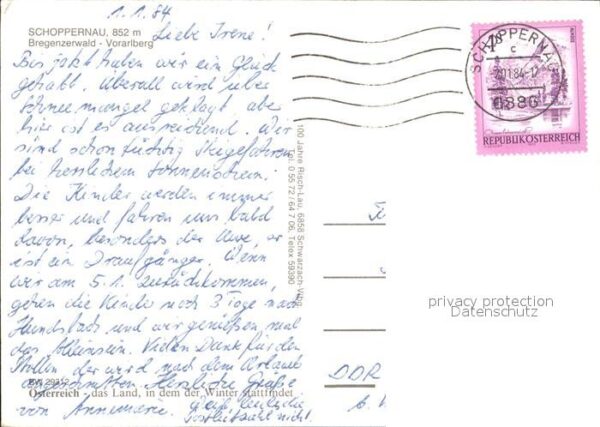 1.1.84
SCHOPPERNAU, 852 m
Bregenzerwald - Vorarlberg
Liebe Irene!
Bis jetzt haben wir ein Glück
gehabt. Überall wird über
Schneemangel geklagt aber
hier ist es ausreichend. Wir
sind schon tüchtig Skigefahren
bei herrlichem Sonnenschein.
Die Kinder werden immer
besser und fahren uns bald
davon, besonders der Uwe, er
ist ein Draufgänger. Wenn
wir am 5.1. zurückkommen,
gehen die Kinder noch 3 Tage nach
und wir genießen mal
das Alleinsein. Vielen Dank für den
Stollen, der wird nach dem Urlaub
Herzliche Grüße
BW 29312
Österreich - das Land, in dem der Winter stattfindet
von Annemarie.
Postleitzahl nicht!
100 Jahre Risch-Lau, 6858 Schwarzach-Vbg.
Tel. 0 55 72 / 64 7 06, Telex 59390
SCHOPPERNAU
c
01.84-17
6886
S
REPUBLIK ÖSTERREICH
privacy protection
Datenschutz
DDR